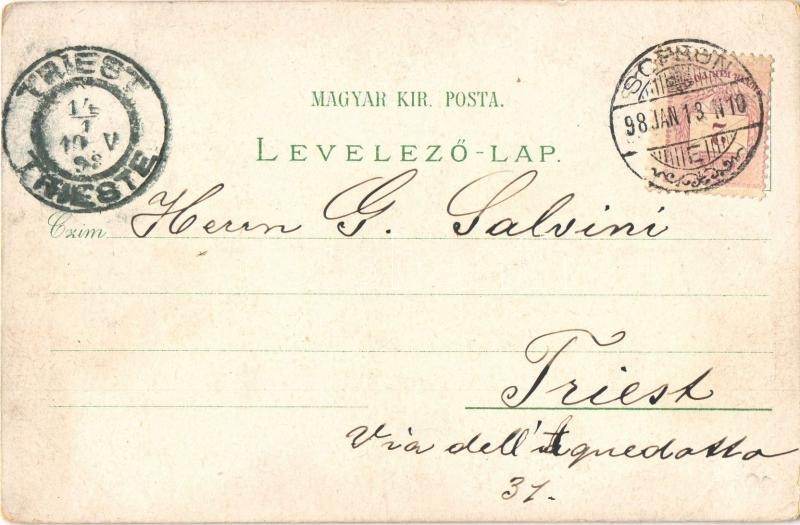 TRIEST
14
1
10 V
98
TRIESTE
SOPRON
98 JAN 13 N10
E
MAGYAR KIR. POSTA.
LEVELEZŐ-LAP.
Czim Herrn G. Salvini
Triest
Via dell'
31.